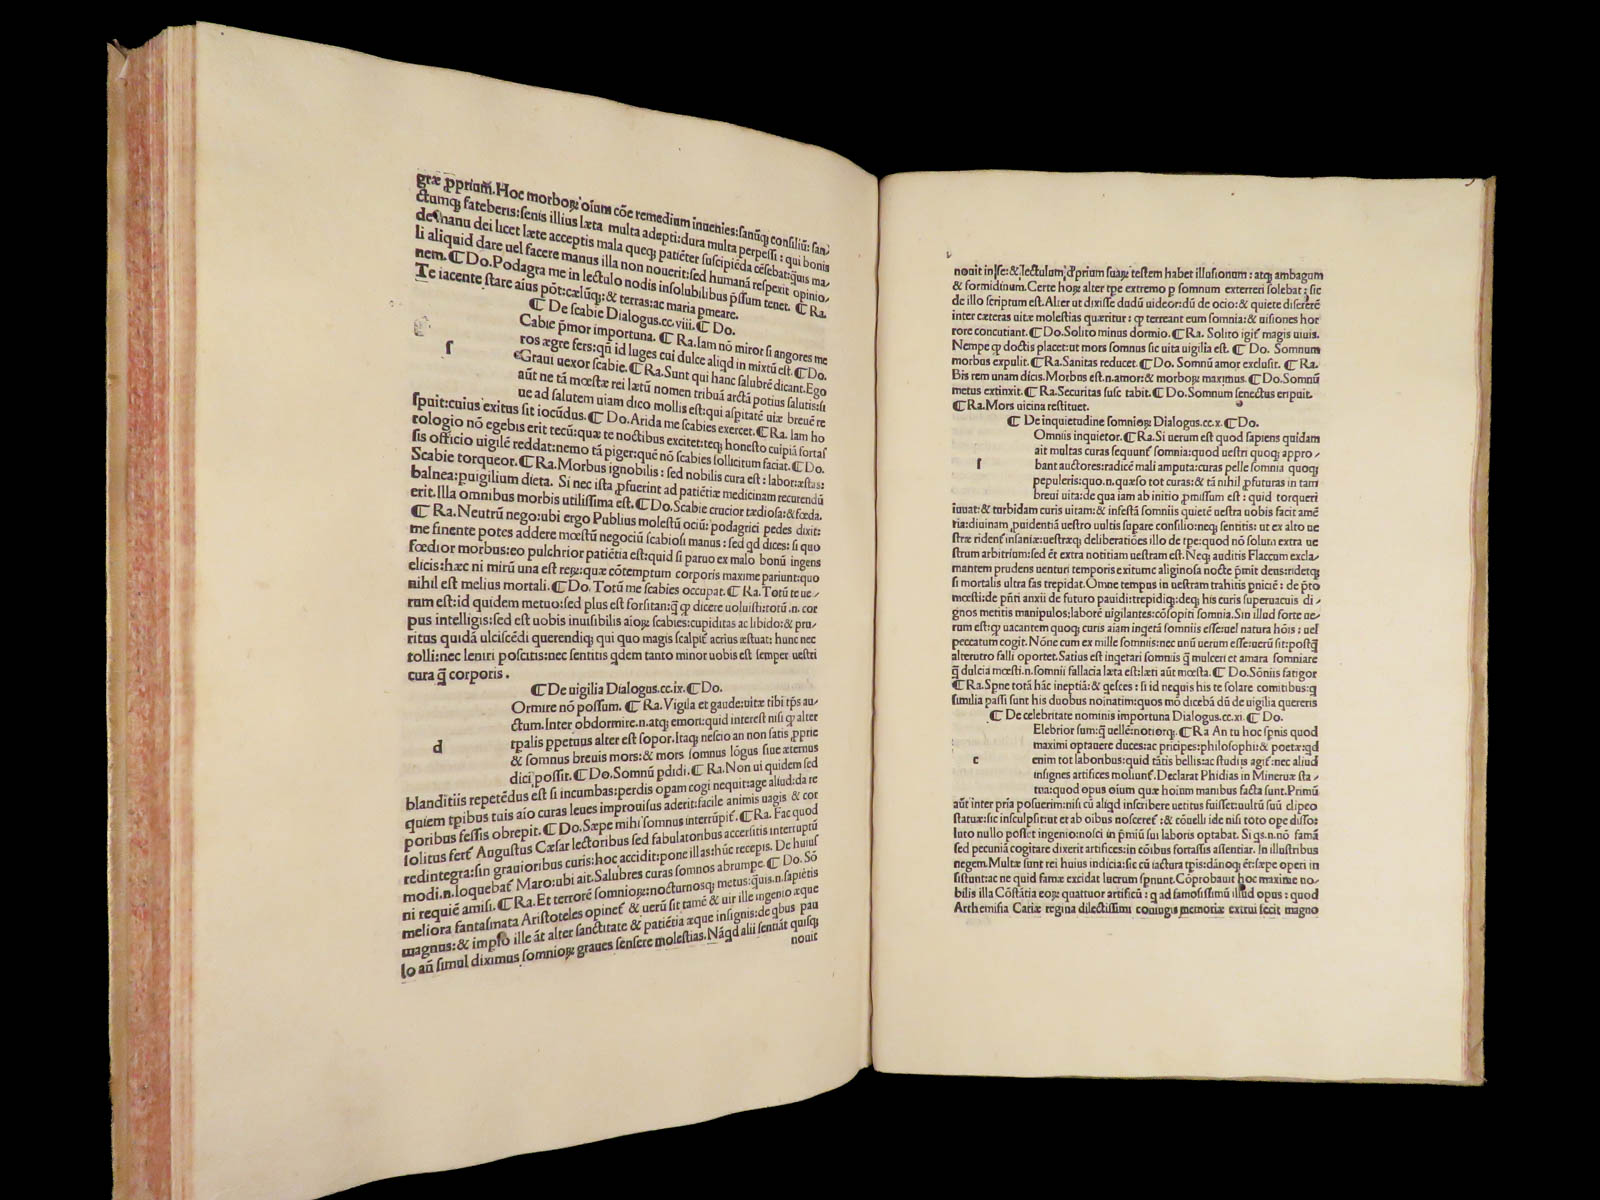 græ ꝓprium̃. Hoc morboꝝ oĩum cõe remedium inuenies: sanũq; consiliũ: san/
ctumq; fateberis: senis illius læta multa adepti: dura multa perpessi: qui bonis
de manu dei licet læte acceptis mala queq; patiẽter suscipiẽda cẽsebat: q̃uis ma/
li aliquid dare uel facere manus illa non nouerit: sed humanã respexit opinio/
nem. ⸿ Do. Podagra me in lectulo nodis insolubilibus p̃ssum tenet. ⸿ Ra.
Te iacente stare aius põt: cælũq; & terras: ac maria ꝑmeare.
⸿ De scabie Dialogus. cc. viii. ⸿ Do.
ſ
Cabie p̃mor importuna. ⸿ Ra. Iam nõ miror si angores me
ros ægre fers: qñ id luges cui dulce aliqd in mixtũ est. ⸿ Do.
Graui uexor scabie. ⸿ Ra. Sunt qui hanc salubrẽ dicant. Ego
aũt ne tã mœstæ rei lætũ nomen tribuã arctã potius salutis: si
ue ad salutem uiam dico mollis est: qui aspitatẽ uiæ breuẽ re
spuit: cuius exitus sit iocũdus. ⸿ Do. Arida me scabies exercet. ⸿ Ra. Iam ho
rologio nõ egebis erit tecũ: quæ te noctibus excitet: teq; honesto cuipiã fortas
sis officio uigilẽ reddat: nemo tã piger: quẽ nõ scabies sollicitum faciat. ⸿ Do.
Scabie torqueor. ⸿ Ra. Morbus ignobilis: sed nobilis cura est: labor: æstas:
balnea: ꝑuigilium dieta. Si nec ista ꝓfuerint ad patiẽtiæ medicinam recurendũ
erit. Illa omnibus morbis utilissima est. ⸿ Do. Scabie crucior tædiosa: & fœda.
⸿ Ra. Neutrũ nego: ubi ergo Publius molestũ ociũ: podagrici pedes dixit:
me finente potes addere mœstũ negociũ scabiosi manus: sed qd dices: si quo
fœdior morbus: eo pulchrior patiẽtia est: quid si paruo ex malo bonũ ingens
elicis: hæc ni mirũ una est reꝝ: quæ cõtemptum corporis maxime pariunt: quo
nihil est melius mortali. ⸿ Do. Totũ me scabies occupat. ⸿ Ra. Totũ te ue/
rum est: id quidem metuo: sed plus est forsitan: q̃ ꝙ dicere uoluisti: totũ .n. cor
pus intelligis: sed est uobis inuisibilis aioꝝ scabies: cupiditas ac libido: & pru/
ritus quidã ulciscẽdi querendiq; qui quo magis scalpiť acrius æstuat: hunc nec
tolli: nec leniri poscitis: nec sentitis q̃dem tanto minor uobis est semper uestri
cura q̃ corporis.
⸿ De uigilia Dialogus. cc. ix. ⸿ Do.
d
Ormire nõ possum. ⸿ Ra. Vigila et gaude: uitæ tibi tp̃s au/
ctum. Inter obdormire .n. atq; emori: quid interest nisi ꝙ alter
tpalis ppetuus alter est sopor. Itaq; nescio an non satis ꝓprie
& somnus breuis mors: & mors somnus lõgus siue æternus
dici possit. ⸿ Do. Somnũ ꝑdidi. ⸿ Ra. Non ui quidem sed
blanditiis repetẽdus est si incumbas: perdis opam cogi nequit: age aliud: da te
quiem tpibus tuis aio curas leues improuisus aderit: facile animis uagis & cor
poribus fessis obrepit. ⸿ Do. Sæpe mihi somnus interrũpiť. ⸿ Ra. Fac quod
solitus ferť Augustus Cæsar lectoribus sed fabulatoribus accersitis interruptũ
redintegra: sin grauioribus curis: hoc accidit: pone illas: hũc recepis. De huius
modi .n. loquebať Maro: ubi ait. Salubres curas somnos abrumpe. ⸿ Do. Sõ
ni requiẽ amisi. ⸿ Ra. Et terrorẽ somnioꝝ: nocturnosq; metus: q̃uis .n. sapiẽtis
meliora fantasmata Aristoteles opineť & uerũ sit tamẽ & uir ille ingenio æque
magnus: & impso ille ãt alter sanctitate & patiẽtia æque insignis: de qbus pau
lo añ simul diximus somnioꝝ graues sensere molestias. Nãqd alii sentiãt quisq;
nouit
nouit in se: & lectulum ꝓprium suaꝝ testem habet illusionum: atq; ambagum
& formidinum. Certe hoꝝ alter tpe extremo ꝑ somnum exterreri solebat: sic
de illo scriptum est. Alter ut dixisse dudũ uideor: dũ de ocio: & quiete discererẽ
inter cæteras uitæ molestias quæritur: ꝙ terreant eum somnia: & uisiones hor
rore concutiant. ⸿ Do. Solito minus dormio. ⸿ Ra. Solito igiť magis uiuis.
Nempe ꝙ doctis placet: ut mors somnus sic uita uigilia est. ⸿ Do. Somnum
morbus expulit. ⸿ Ra. Sanitas reducet. ⸿ Do. Somnũ amor exclusit. ⸿ Ra.
Bis rem unam dicis. Morbus est .n. amor: & morboꝝ maximus. ⸿ Do. Somnũ
metus extinxit. ⸿ Ra. Securitas fusc tabit. ⸿ Do. Somnum senectus eripuit.
⸿ Ra. Mors uicina restituet.
⸿ De inquietudine somnioꝝ Dialogus. cc. x. ⸿ Do.
ſ
Omniis inquietor. ⸿ Ra. Si uerum est quod sapiens quidam
ait multas curas sequunť somnia: quod uestri quoq; appro/
bant auctores: radicẽ mali amputa: curas pelle somnia quoq;
pepuleris: quo .n. quæso tot curas: & tã nihil ꝓfuturas in tam
breui uita: de qua iam ab initio ꝓmissum est: quid torqueri
iuuat: & turbidam curis uitam: & infestã somniis quietẽ uestra uobis facit amẽ
tia: diuinam ꝓuidentiã uestro uultis supare consilio: neq; sentitis: ut ex alto ue
stræ ridenť insaniæ: uestræq; deliberatiões illo de tpe: quod nõ solum extra ue
strum arbitrium: sed eť extra notitiam uestram est. Neq; auditis Flaccum excla/
mantem prudens uenturi temporis exitum caliginosa nocte p̃mit deus: ridetq;
si mortalis ultra fas trepidat. Omne tempus in uestram trahitis ꝑniciẽ: de p̃to
mœsti: de pñti anxii de futuro pauidi: trepidiq; deq; his curis superuacuis di/
gnos metitis manipulos: laborẽ uigilantes: cõsopiti somnia. Sin illud forte ue/
rum est: ꝙ uacantem quoq; curis aiam inq̃etã somniis esse: uel natura hõis: uel
peccatum cogit. Nõne cum ex mille somniis: nec unũ uerum esse: uerũ sit: postq̃
alterutro falli oportet. Satius est inq̃etari somniis q̃ mulceri et amara somniare
q̃ dulcia mœsti .n. somnii fallacia læta est: læti aũt mœsta. ⸿ Do. Sõniis fatigor
⸿ Ra. Sp̃ne totã hãc ineptiã: & q̃esces: si id nequis his te solare comitibus: q
similia passi sunt his duobus noĩnatim: quos mõ dicebã dũ de uigilia quereris
⸿ De celebritate nominis importuna Dialogus. cc. xi. ⸿ Do.
c
Elebrior sum: q̃ uellẽ: notiorq;. ⸿ Ra An tu hoc sp̃nis quod
maximi optauere duces: ac pricipes: philosophi: & poetæ: qd
enim tot laboribus: quid tãtis bellis: ac studiis agiť: nec aliud
insignes artifices moliunť. Declarat Phidias in Mineruæ sta/
tua: quod opus oĩum quæ hoĩum manibus facta sunt. Primũ
aũt inter pria posuerim: nisi cũ aliqd inscribere uetitus fuisset: uultũ suũ clipeo
statuæ: sic insculpsit: ut et ab oibus nosceret́: & cõuelli ide nisi toto ope disso:
luto nullo posset ingenio: nosci in p̃miũ sui laboris optabat. Si qs .n. nõ famã
sed pecuniã cogitare dixerit artifices: in cõibus fortassis assentiar. In illustribus
negem. Multæ sunt rei huius indicia: sic cũ iactura tp̃is: dãnoq; eť: sæpe operi in
sistunt: ac ne quid famæ excidat lucrum sp̃nunt. Cõprobauit hoc maxime no/
bilis illa Cõstãtia eoꝝ quattuor artificũ: q ad famosissimũ illud opus: quod
Arthemisia Cariæ regina dilectissimi coniugis memoriæ extrui fecit magno